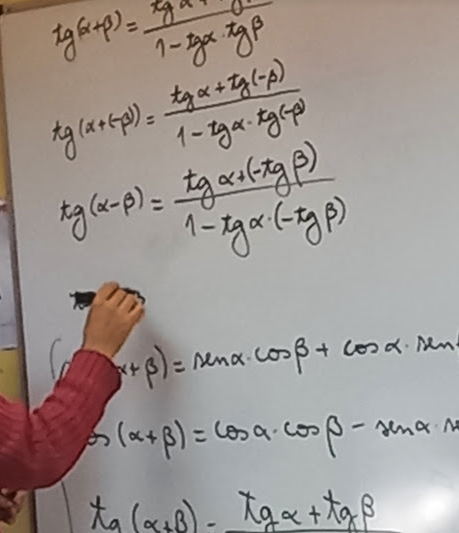 tg(α+β) = tgα+ / 1-tgα·tgβ
tg(α+(-β)) = tgα+tg(-β) / 1-tgα·tg(-β)
tg(α-β) = tgα+(-tgβ) / 1-tgα·(-tgβ)
α+β) = senα·cosβ + cosα·sen
(α+β) = cosα·cosβ - senα·
tg(α+β) = tgα+tgβ